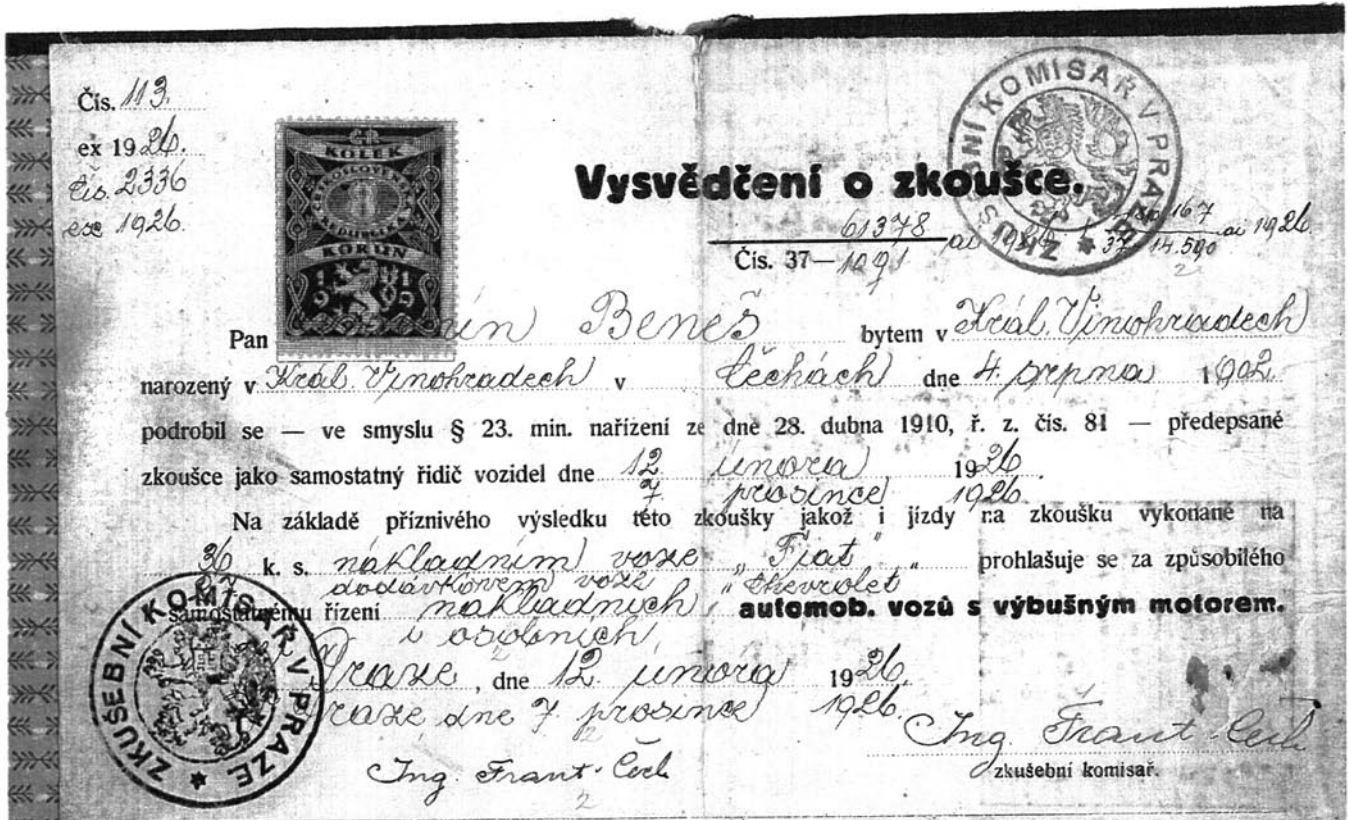 Čís. 113.
ex 1926.
čís. 2336
ex 1926.
KOLEK
ČESKOSLOVENSKÁ
REPUBLIKA
8
KORUN
1919
ZKUŠEBNÍ KOMISAŘ V PRAZE
Vysvědčení o zkoušce.
61378 ai 1926
Čís. 37—1091
167
37 14.590 ai 1926.
2
Pan Beneš bytem v Král. Vinohradech
narozený v Král. Vinohradech v Čechách dne 4. srpna 1902
podrobil se — ve smyslu § 23. min. nařízení ze dne 28. dubna 1910, ř. z. čís. 81 — předepsané
zkoušce jako samostatný řidič vozidel dne 12. února 1926.
7. prosince 1926.
Na základě příznivého výsledku této zkoušky jakož i jízdy na zkoušku vykonané na
36 k. s. nákladním voze „Fiat“ prohlašuje se za způsobilého
dodávkovém voze „Chevrolet
samostatnému řízení nákladních automob. vozů s výbušným motorem.
i osobních
Praze, dne 12. února 1926.
Praze dne 7. prosince 1926.
Ing. Frant.
zkušební komisař.
Ing. Frant.
2
ZKUŠEBNÍ KOMISAŘ V PRAZE